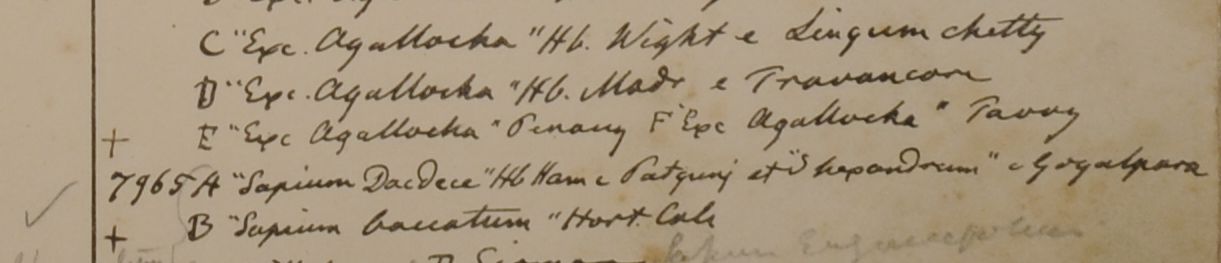 C "Exc. Agallocha" Hb. Wight e Lingum chetty
D "Exc. Agallocha" Hb. Madr e Travancore
+ E "Exc Agallocha" Penang F "Exc Agallocha" Tavoy
7965 A "Sapium Dacdece" Hb Ham e Patgunj et "S hexandrum" e Goyalpara
+ B "Sapium baccatum" Hort. Calc